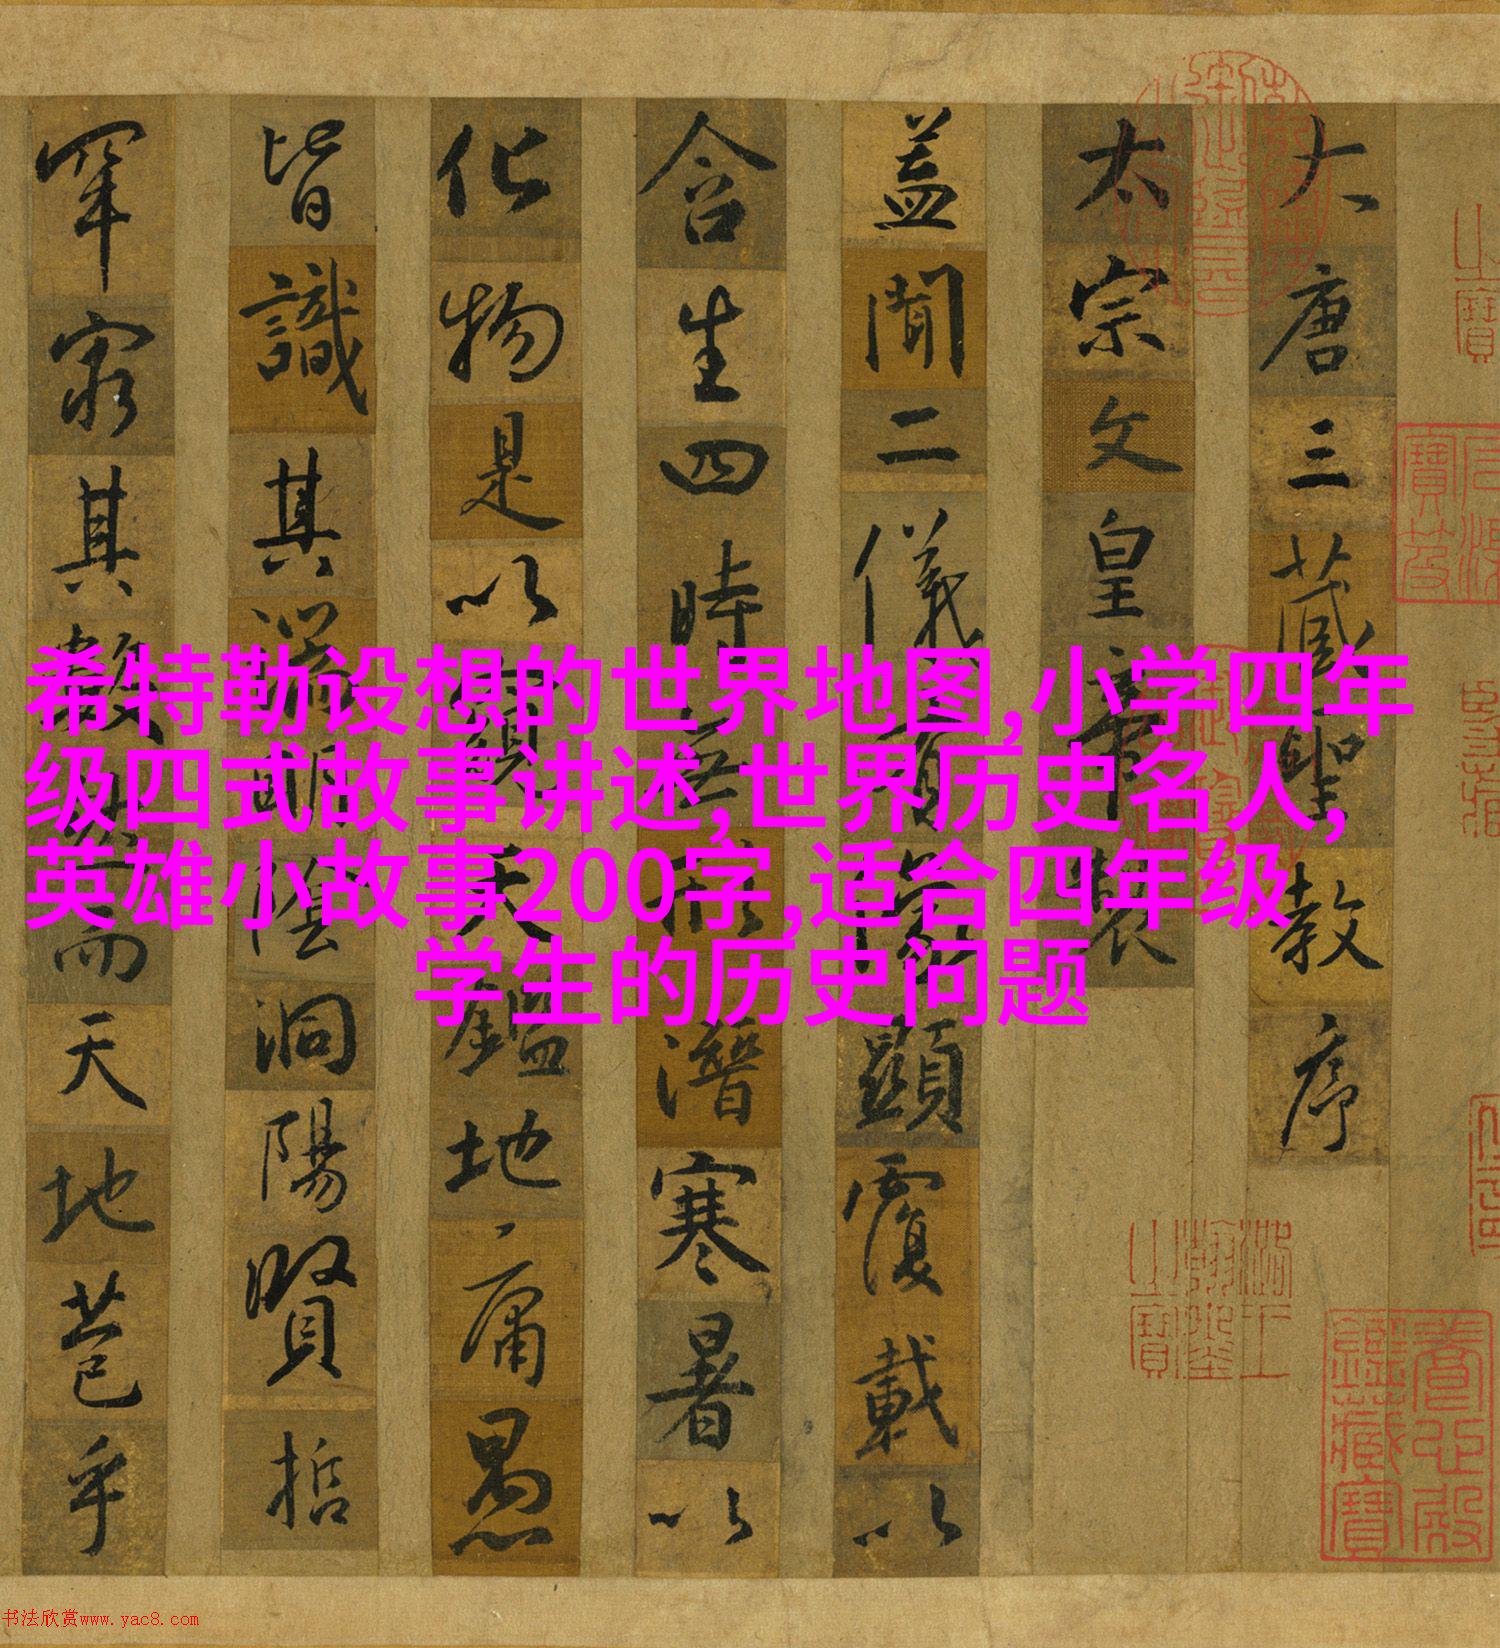 希特勒设想的世界地图,小学四年
级四式故事讲述,世界历史名人,
英雄小故事200字,适合四年级
学生的历史问题
大唐三藏聖教序
太宗文皇帝製
蓋聞二儀有像顯覆載以
含生四時無形潛寒暑以
化物是以窺天鑑地庸愚
皆識其端明陰洞陽賢哲
罕窮其數然而天地苞乎
石渠
寶笈
養心殿
鑑藏寶
书法欣赏www.yac8.com